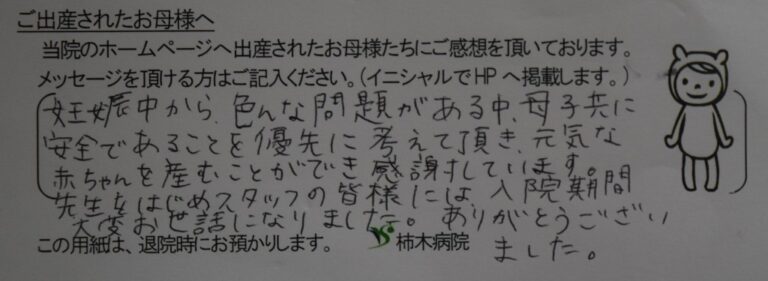 ご出産されたお母様へ
当院のホームページへ出産されたお母様たちにご感想を頂いております。
メッセージを頂ける方はご記入ください。(イニシャルでHPへ掲載します。)
妊娠中から、色んな問題がある中、母子共に
安全であることを優先に考えて頂き、元気な
赤ちゃんを産むことができ感謝しています。
先生をはじめスタッフの皆様には、入院期間
大変お世話になりました。ありがとうござい
ました。
この用紙は、退院時にお預かりします。 柿木病院